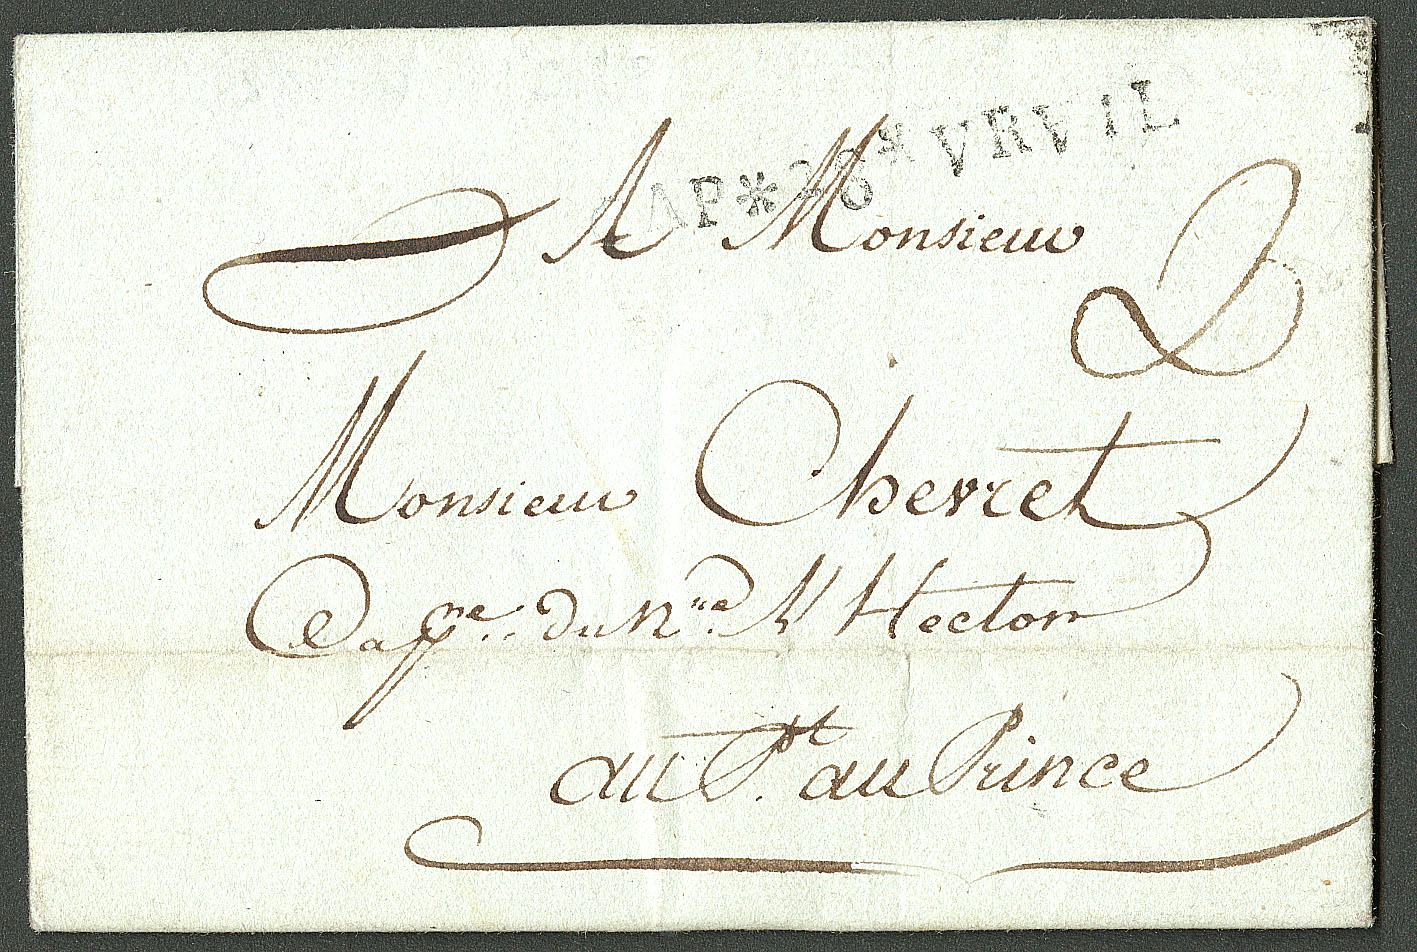 AP*28*VRVIL
A Monsieur
Monsieur Chevret
Capne. du Nre. Hector
au Pt. au Prince